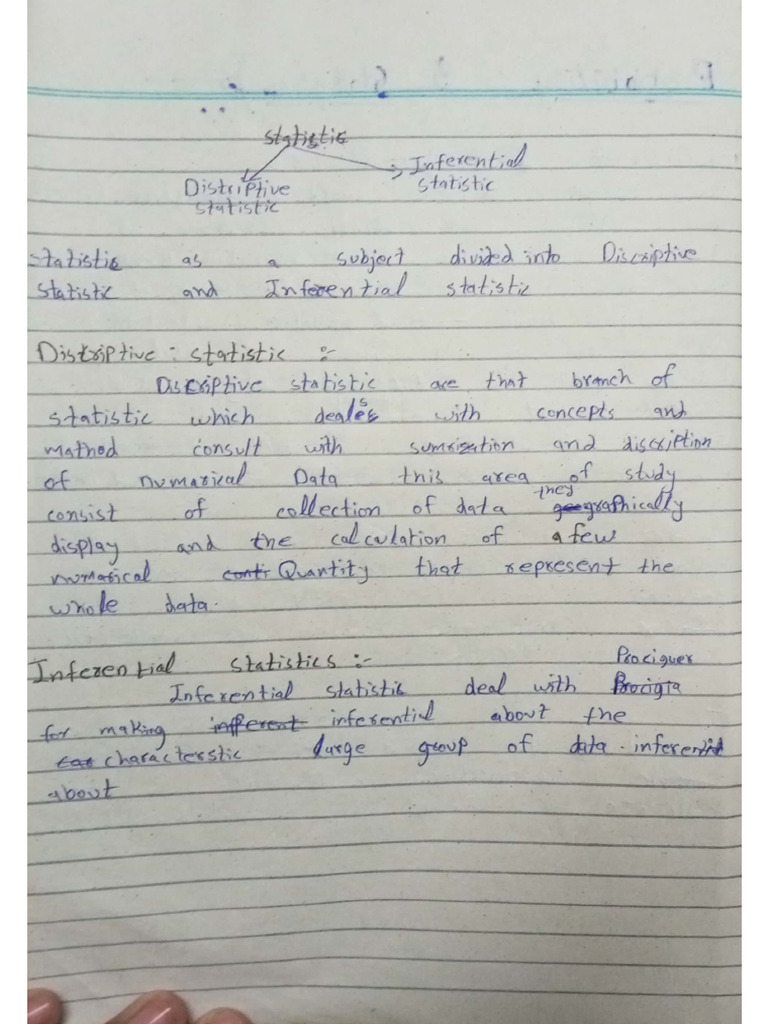 Statistic
Inferential
statistic
Distriptive
statistic
statistic as a subject divided into Discriptive
statistic and Inferential statistic
Distriptive : statistic :-
Discriptive statistic are that branch of
statistic which deales with concepts and
mathod consult with sumrization and discription
of numarical Data this area of study
consist of collection of data they graphically
display and the calculation of a few
numarical Quantity that represent the
whole data.
Inferential statistics :-
Prociquer
Inferential statistic deal with Procigra
for making infferent inferential about the
characterstic large group of data. inferential
about